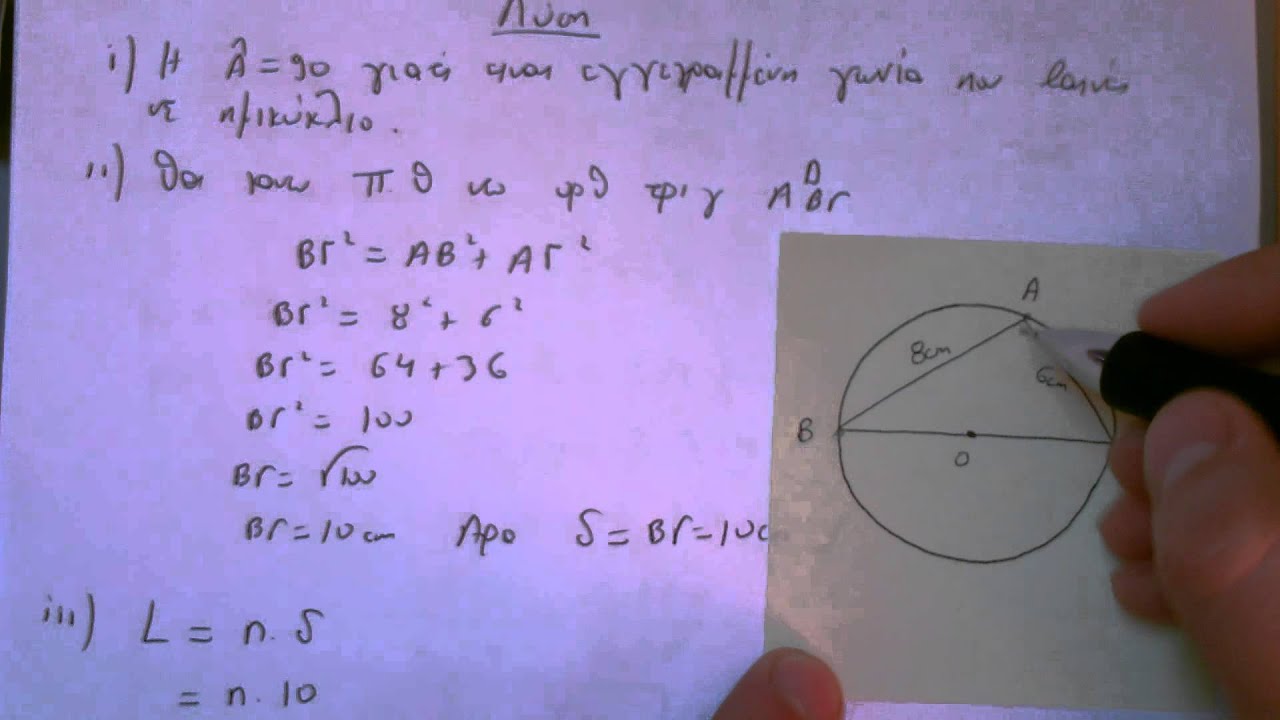 Λύση
i) Η Â = 90 γιατί είναι εγγεγραμμένη γωνία που βαίνει
σε ημικύκλιο.
ii) Θα κανω Π.Θ στο ορθ τριγ ΑΒΓ
ΒΓ² = ΑΒ² + ΑΓ²
ΒΓ² = 8² + 6²
ΒΓ² = 64 + 36
ΒΓ² = 100
ΒΓ = √100
ΒΓ = 10 cm Αρα δ = ΒΓ = 10c
iii) L = π. δ
= π. 10
A
8cm
6cm
B
O